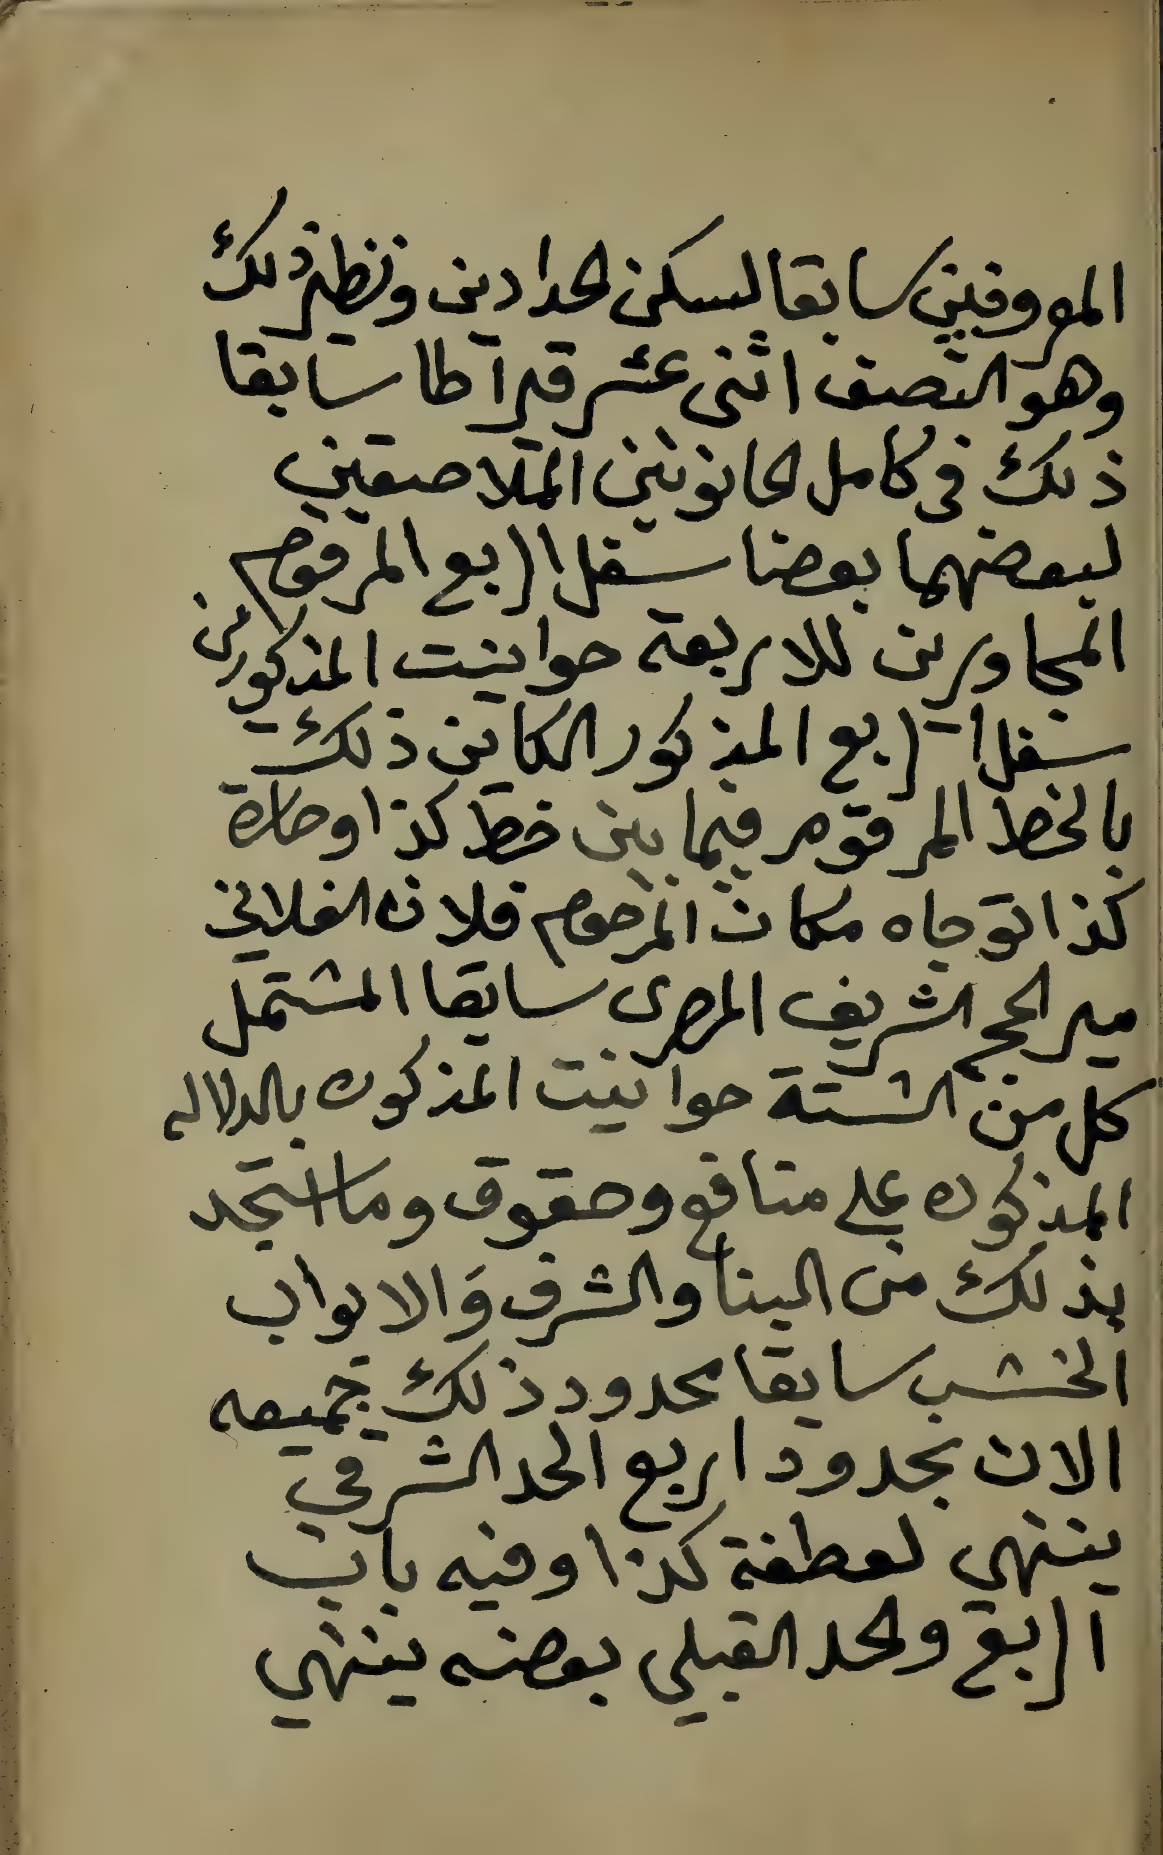 المعروفين سابقا لسكن الحدادين ونظير ذلك
وهو النصف اثنى عشر قيراطا سابقا
ذلك فى كامل الحانوتين المتلاصقين
لبعضهما بعضا سفل الربع المرقوم
المجاورين للاربعة حوانيت المذكورين
سفل الربع المذكور الكاين ذلك
بالخط المرقوم فيما بين خط كذا وحارة
كذا توجاه مكان المرحوم فلان الفلاني
مير الحج الشريف المصرى سابقا المشتمل
كل من الستة حوانيت المذكوره بالدلاله
المذكوره على منافع وحقوق وما استجد
بذلك من البنا والشرف والابواب
الخشب سابقا محدود ذلك جميعه
الان بحدود اربع الحد الشرقي
ينتهي لعطفة كذا وفيه باب
الربع والحد القبلي بعضه ينتهي